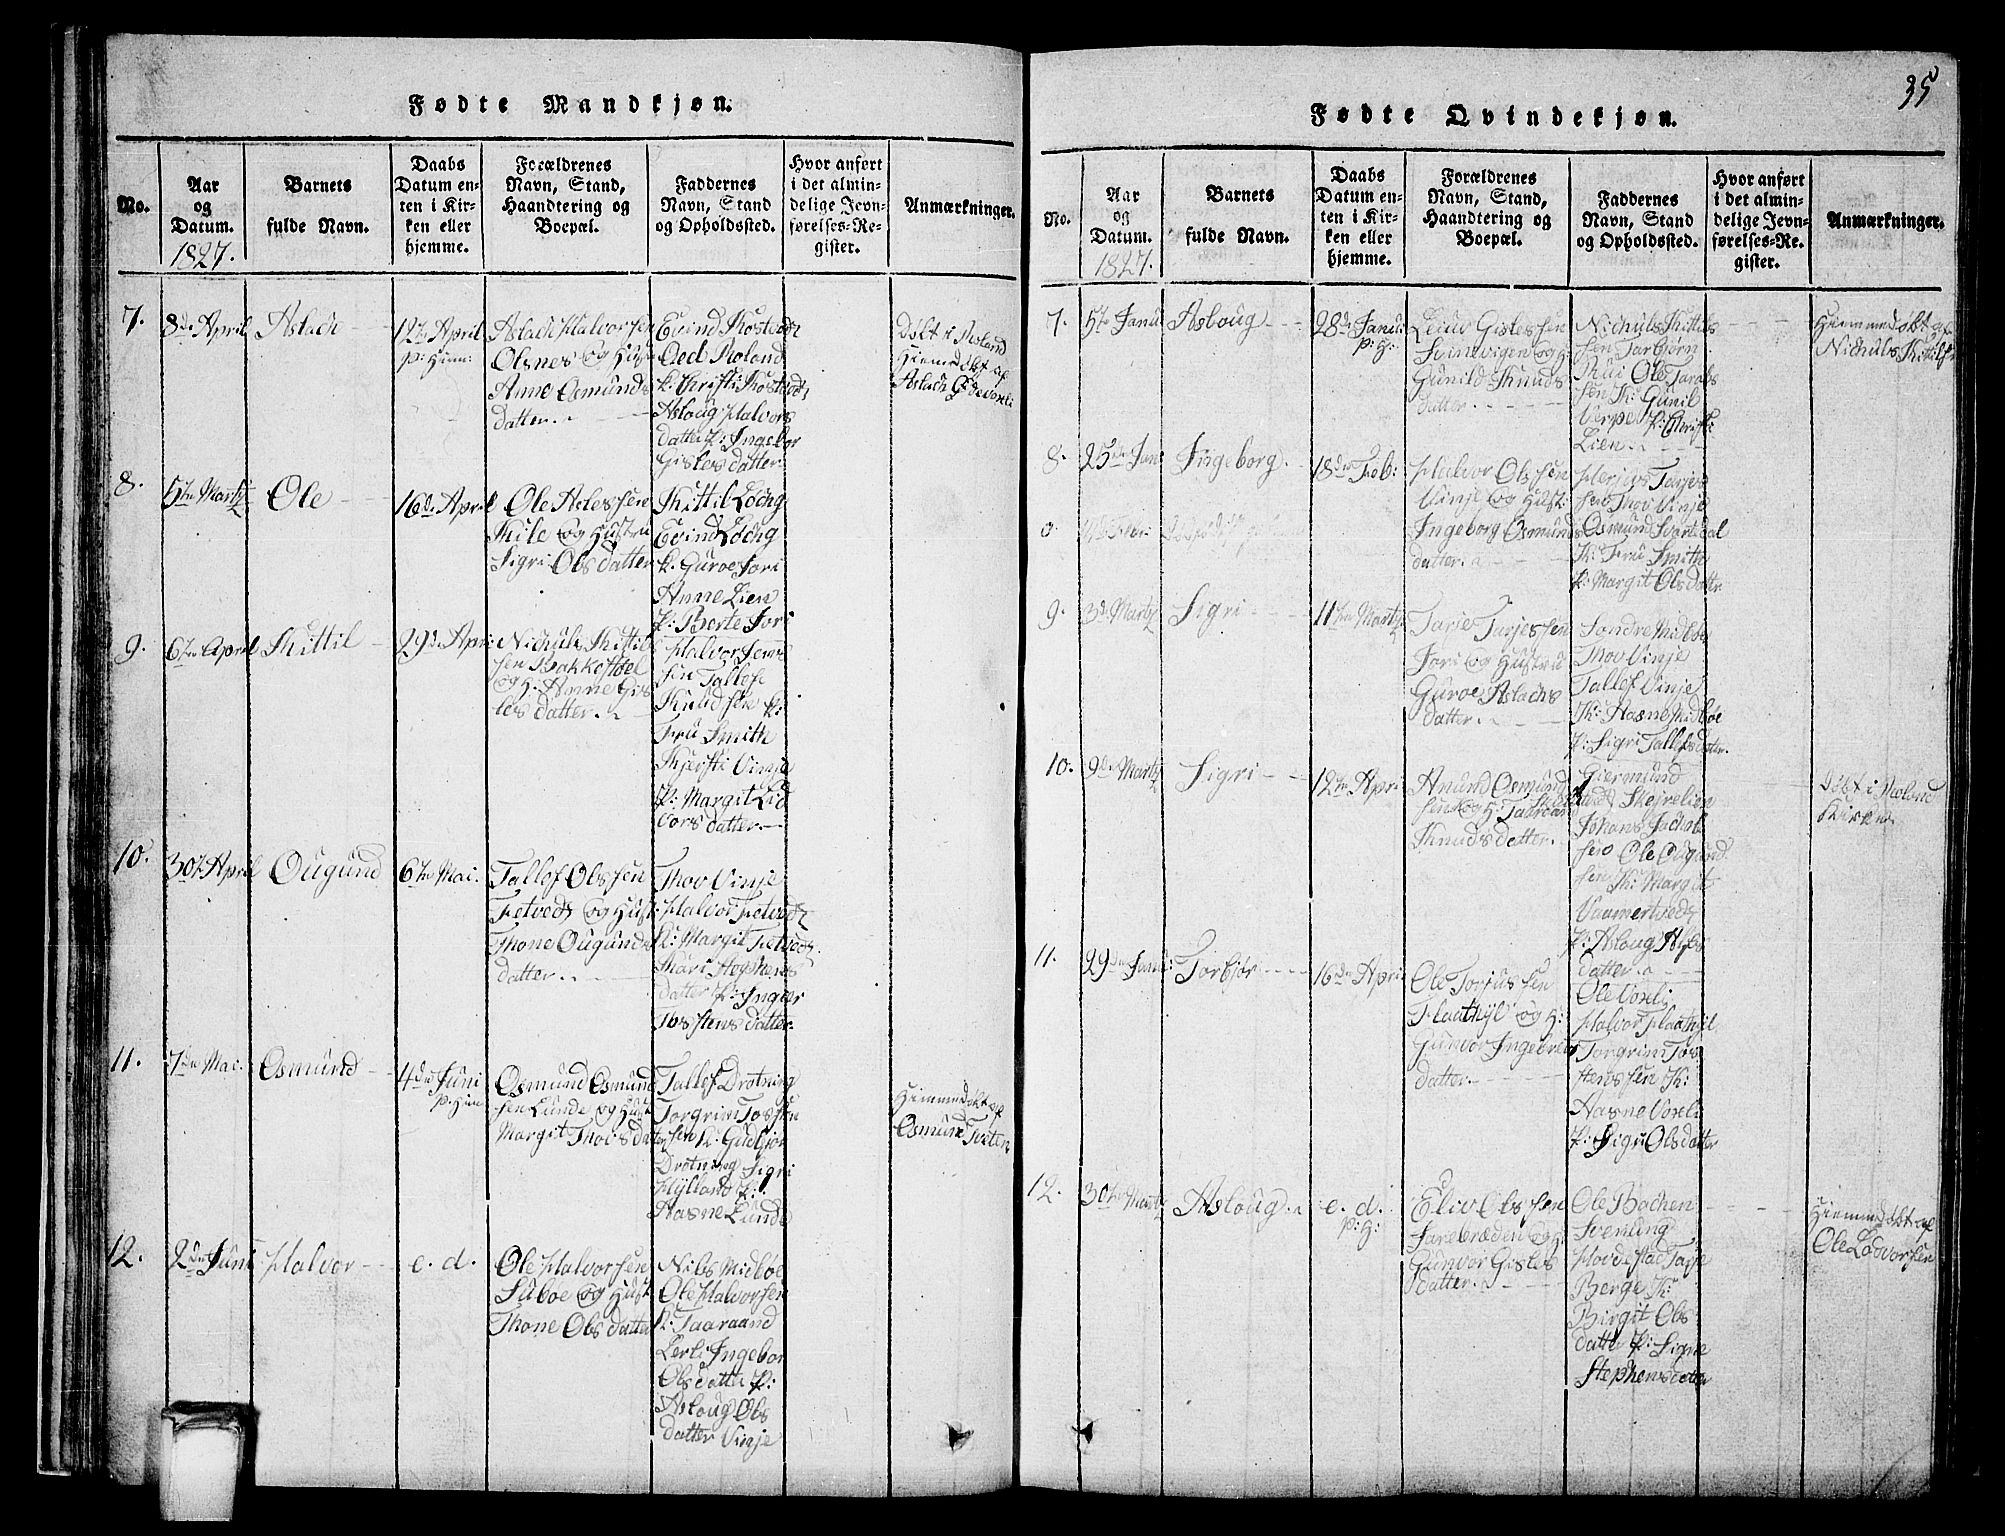 Fødte Mandkjøn.
No.
Aar
og
Datum.
1827.
Barnets
fulde Navn.
Daabs
Datum en-
ten i Kir-
ken eller
hjemme.
Forældrenes
Navn, Stand,
Haandtering og
Boepæl.
Faddernes
Navn, Stand
og Opholdssted.
Hvor anført
i det almin-
delige Jevn-
førelses-Re-
gister.
Anmærkninger.
7.
8de April
Aslach
12te April
p: Hiem:
Aslach Halvorsen
Olsnes og Hust
Anne Osmunds
datter.
Evind
Qed Roland
k. Christi
Asloug Halvors
datter p: Ingebor
Gisles datter.
Døbt i Moland
Hiemedøbt af
Aslach
8.
5te Martz
Ole
16de April
Ole Aslessen
Kile og Hustru
Sigri Olsdatter
Kittil Loehg
Evind Loehg
k. Guroe Sori
Anne Lien
p: Berte Sori
9.
6te April
Kittil
29de Apri:
Nichuls Kittil
sen Bakkestøel
og H: Anne Gis
les datter.
Halvor Jens
sen Tallef
Knudsen k:
Fru Smith
Kjersti Vinje
p: Margit Lid
vors datter.
10.
30te April
Ougund
6te Mai.
Tallef Olssen
Fetveds og Hust:
Thone Ougunds
datter.
Thov Vinje
Halvor Fetveds
k: Margit Fetveds
Kari Stephens
datter p: Inger
Torstens datter.
11.
7de Mai.
Osmund
4de Juni
p: Hiem
Osmund Osmund
sen Lunde og Hust
Margit Thovs datter
Tallef Drotning
Torgrim Tossten
sen k: Gudbjør
Drotning Sigri
Hylland p:
Aasne Lunde
Hiemmedøbt af
Osmund Tveten
12.
2de Juni
Halvor
e. d.
Ole Halvorsen
Suboe og Hust
Thone Ols datter
Nils Midbøe
Ole Halvorsen
k: Taaraand
Lerli Ingebor
Ols datter p:
Asloug Ols
datter Vinje
35
Fødte Qvindekjøn.
No.
Aar
og
Datum.
1827.
Barnets
fulde Navn.
Daabs
Datum en-
ten i Kir-
ken eller
hjemme.
Forældrenes
Navn, Stand,
Haandtering og
Boepæl.
Faddernes
Navn, Stand
og Opholdssted.
Hvor anført
i det almin-
delige Jevn-
førelses-Re-
gister.
Anmærkninger.
7.
5te Janu:
Asloug
28de Janu:
p: H:
Leiuv Gislessen
Svinevigen og H:
Gunild Knuds
datter.
Nichuls Kittils
sen Tarbjørn
Kui Ole Tarals
sen K: Gunil
Verpe p: Christi
Lien.
Hiemmedøbt af
Nichuls Kittils
8.
25de Jan:
Ingeborg
18de Feb:
Halvor Olssen
Vinje og Hust:
Ingeborg Osmunds
datter.
Herjus Tarjes
sen Thov Vinje
Osmund Svartdal
K: Fru Smith
p: Margit Olsdatter
9.
3de Martz
Sigri
11te Martz
Tarje Tarjessen
Sori og Hustru
Guroe Aslachs
datter.
Sondre Midbøe
Thov Vinje
Tallef Vinje
K: Aasne Midbøe
p: Sigri Tallefsdatter.
10.
9de Martz
Sigri
12te Apri
Anund Osmund
sen og H: Taaraand
Knuds datter.
Giermund
Skejrelien
Johans Jachob
sen Ole Ougund
sen K: Margit
Vaamertveds
p: Asloug Asles
datter.
Døbt i Molend
Kirke
11.
29de Janu:
Torbjør
16de Apri:
Ole Torjussen
Flaathyl og H:
Gunvor Ingebret
datter.
Ole Voxli
Halvor Flaathyl
Torgrim Tos
stenssen K:
Aasne Voxli
p: Sigri Olsdatter
12.
30te Martz
Asloug
e. d.
p: H:
Eliv Olssen
Farebræden og H:
Gunvor Gisles
datter.
Ole Bachen
Svenung
Hovdestad Tarje
Berge K:
Birgit Ols
datter p: Signe
Stephensdatter
Hiemmedøbt af
Ole Lodvorsen